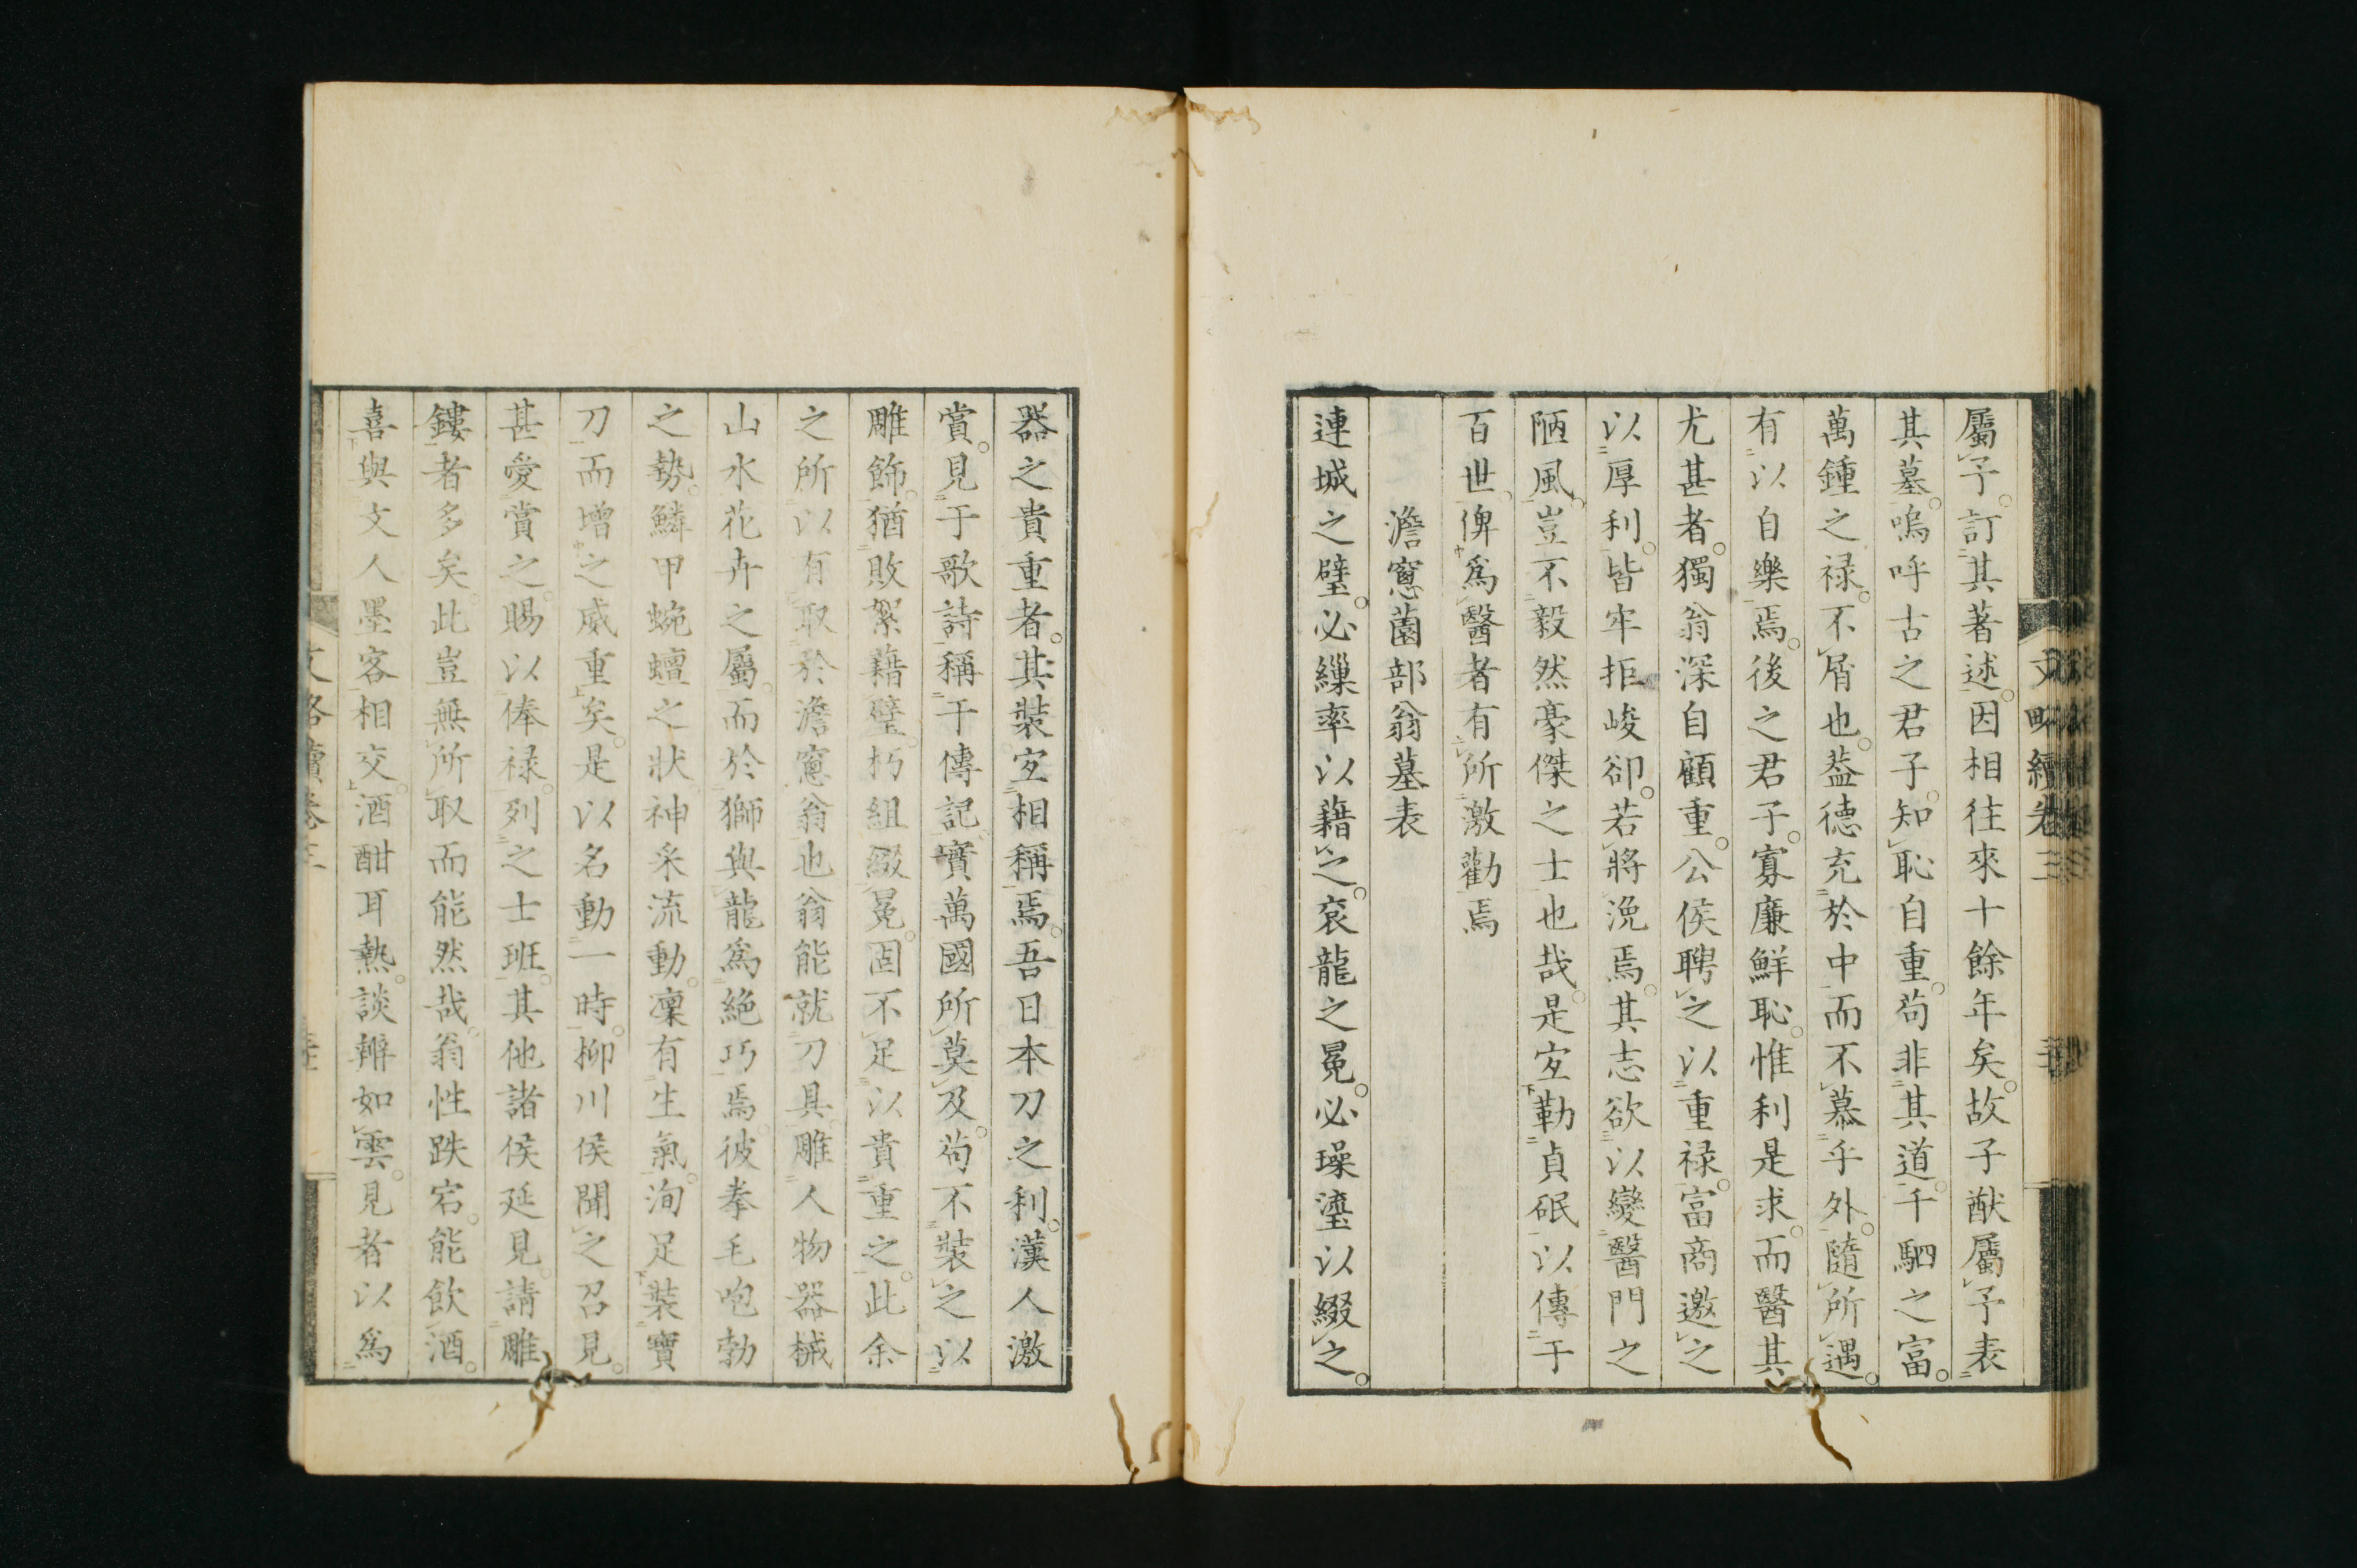 屬予。訂其著述。因相往來十餘年矣。故子猷屬予表
其墓。嗚呼古之君子。知恥自重。苟非其道。千駟之富。
萬鍾之祿。不屑也。葢德充於中。而不慕乎外。隨所遇。
有以自樂焉。後之君子。寡廉鮮恥。惟利是求。而醫其
尤甚者。獨翁深自顧重。公侯聘之以重祿。富商邀之
以厚利。皆牢拒峻卻。若將浼焉。其志欲以變醫門之
陋風。豈不毅然豪傑之士也哉。是宐勒貞砥以傳于
百世。俾爲醫者有所激勸焉
澹窻菌部翁墓表
連城之璧。必繅率以藉之。袞龍之冕。必璪瑬以綴之。
文略續卷三
器之貴重者。其裝宐相稱焉。吾日本刀之利。漢人激
賞。見于歌詩。稱于傳記。實萬國所莫及。苟不裝之以
雕飾。猶敗絮藉璧。朽組綴冕。固不足以貴重之。此余
之所以有取於澹窻翁也翁能就刀具。雕人物器械
山水花卉之屬。而於獅與龍爲絶巧焉。彼拳毛咆勃
之勢。鱗甲蜿蟺之狀。神采流動。凜有生氣。洵足裝寶
刀而增之威重矣。是以名動一時。柳川侯聞之召見。
甚愛賞之。賜以俸祿。列之士班。其他諸侯延見。請雕
鏤者多矣。此豈無所取而能然哉。翁性跌宕。能飲酒。
喜與文人墨客相交。酒酣耳熱。談辨如雲。見者以爲
文略續卷三